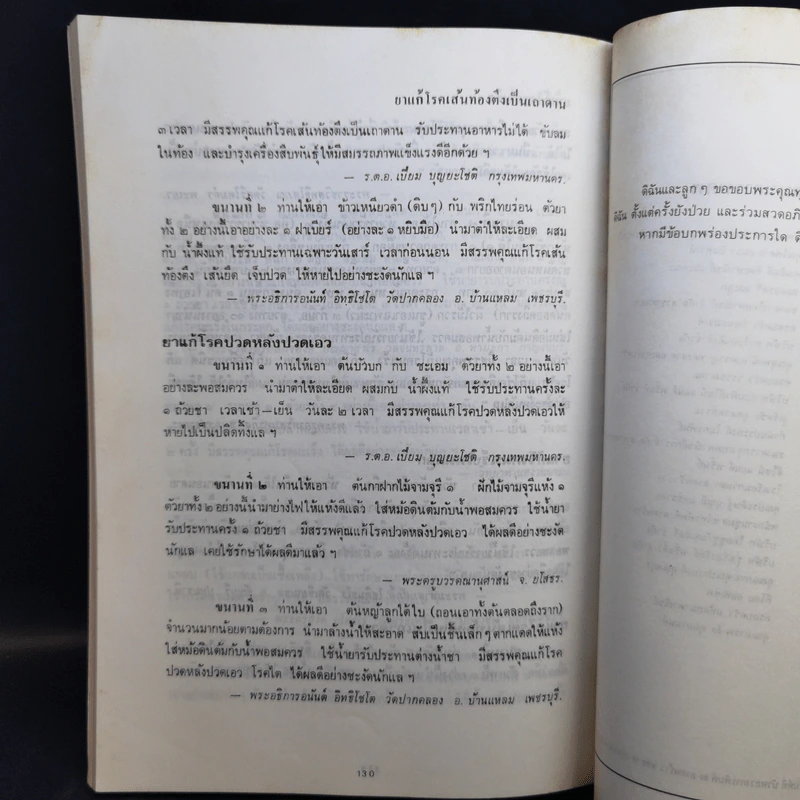 ยาแก้โรคเส้นท้องตึงเป็นเถาดาน
๓ เวลา มีสรรพคุณแก้โรคเส้นท้องตึงเป็นเถาดาน รับประทานอาหารไม่ได้ ขับลม
ในท้อง และบำรุงเครื่องสืบพันธุ์ให้มีสมรรถภาพแข็งแรงดีอีกด้วย ฯ
— ร.ต.อ. เปี่ยม บุญยะโชติ กรุงเทพมหานคร.
ขนานที่ ๒ ท่านให้เอา ข้าวเหนียวดำ (ดิบๆ) กับ พริกไทยร่อน ตัวยา
ทั้ง ๒ อย่างนี้เอาอย่างละ ๑ ฝาเบียร์ (อย่างละ ๑ หยิบมือ) นำมาตำให้ละเอียด ผสม
กับ น้ำผึ้งแท้ ใช้รับประทานเฉพาะวันเสาร์ เวลาก่อนนอน มีสรรพคุณแก้โรคเส้น
ท้องตึง เส้นยึด เจ็บปวด ให้หายไปอย่างชะงัดนักแล ฯ
— พระอธิการอนันท์ อิทธิโชโต วัดปากคลอง อ. บ้านแหลม เพชรบุรี.
ยาแก้โรคปวดหลังปวดเอว
ขนานที่ ๑ ท่านให้เอา ต้นบัวบก กับ ชะเอม ตัวยาทั้ง ๒ อย่างนี้เอา
อย่างละพอสมควร นำมาตำให้ละเอียด ผสมกับ น้ำผึ้งแท้ ใช้รับประทานครั้งละ
๑ ถ้วยชา เวลาเช้า–เย็น วันละ ๒ เวลา มีสรรพคุณแก้โรคปวดหลังปวดเอวให้
หายไปเป็นปลิดทิ้งแล ฯ
— ร.ต.อ. เปี่ยม บุญยะโชติ กรุงเทพมหานคร.
ขนานที่ ๒ ท่านให้เอา ต้นกาฝากไม้จามจุรี ๑ ฝักไม้จามจุรีแห้ง ๑
ตัวยาทั้ง ๒ อย่างนี้นำมาย่างไฟให้แห้งดีแล้ว ใส่หม้อดินต้มกับน้ำพอสมควร ใช้น้ำยา
รับประทานครั้ง ๑ ถ้วยชา มีสรรพคุณแก้โรคปวดหลังปวดเอว ได้ผลดีอย่างชะงัด
นักแล เคยใช้รักษาได้ผลดีมาแล้ว ฯ
— พระครูบวรคณานุศาสน์ จ. ยโสธร.
ขนานที่ ๓ ท่านให้เอา ต้นหญ้าลูกใต้ใบ (ถอนเอาทั้งต้นตลอดถึงราก)
จำนวนมากน้อยตามต้องการ นำมาล้างน้ำให้สะอาด สับเป็นชิ้นเล็กๆ ตากแดดให้แห้ง
ใส่หม้อดินต้มกับน้ำพอสมควร ใช้น้ำยารับประทานต่างน้ำชา มีสรรพคุณแก้โรค
ปวดหลังปวดเอว โรคไต ได้ผลดีอย่างชะงัดนักแล ฯ
— พระอธิการอนันต์ อิทธิโชโต วัดปากคลอง อ. บ้านแหลม เพชรบุรี.
130
ดิฉันและลูก ๆ ขอขอบพระคุณ
ดิฉัน ตั้งแต่ครั้งยังป่วย และร่วมสวดอภิ
หากมีข้อบกพร่องประการใด